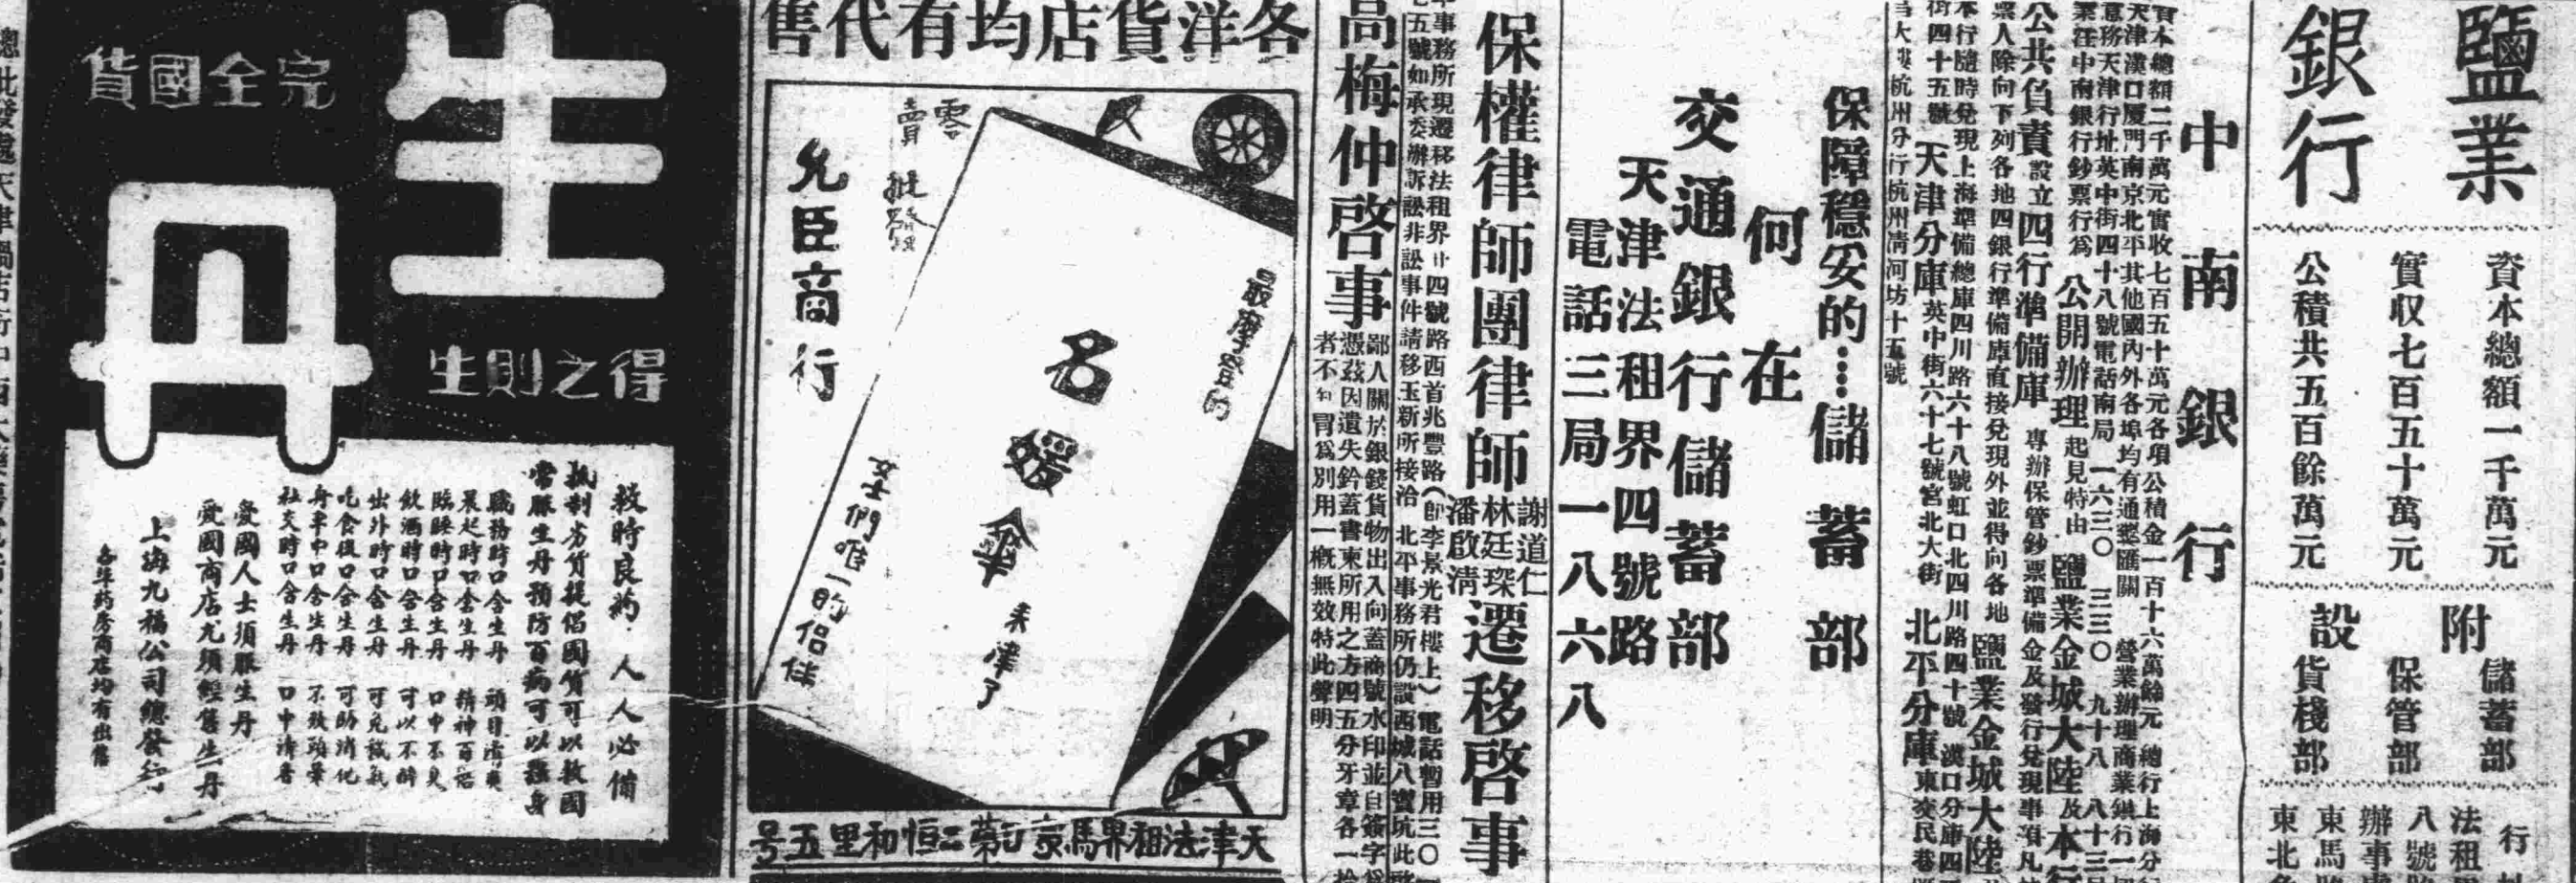 鹽業
銀行
資本總額一千萬元
實收七百五十萬元
公積共五百餘萬元
附設
儲蓄部
保管部
貨棧部
行
法租
八號
辦事
東馬
東北
中南銀行
資本總額二千萬元實收七百五十萬元各項公積金一百十六萬餘元 總行上海分
天津漢口厦門南京北平其他國內外各埠均有通匯 營業辦理商業銀行一
務天津行址英中街四十八號電話南局一六三〇 三三〇 九十八 八十三
中南銀行鈔票行爲公開辦理起見特由鹽業金城大陸及本行
公共負責設立四行準備庫專辦保管鈔票準備金及發行兌現事項凡
票人除向下列各地四銀行準備庫直接兌現外並得向各地鹽業金城大陸
本行隨時兌現上海準備總庫四川路六十八號虹口北四川路四十號 漢口分庫四
街四十五號天津分庫英中街六十七號宮北大街北平分庫東交民巷
大樓杭州分行杭州清河坊十五號
保障穩妥的……儲蓄部
何在
交通銀行儲蓄部
天津法租界四號路
電話三局一八六八
保權律師團律師
謝道仁
林廷琛
潘啟清
遷移啓事
事務所現遷移法租界廿四號路西首兆豐路（卽李景光君樓上）電話暫用三〇
五號如承委辦訴訟非訟事件請移玉新所接洽 北平事務所仍設西城八寶坑此啓
高梅仲啓事
鄙人關於銀錢貨物出入向蓋商號水印並自簽字爲
憑茲因遺失鈐蓋書柬所用之方四五分牙章各一
者不知冒爲別用一概無效特此聲明
各洋貨店均有代售
零賣
批發
允臣商行
最摩登的
名媛傘
來津了
女士們唯一的侶伴
天津法租界馬家口第二恒和里五号
生丹
完全國貨
得之則生
救時良药 人人必備
抵制劣貨提倡國貨可以救國
常服生丹預防百病可以強身
職務時口含生丹 頭目清爽
晨起時口含生丹 精神百倍
臨睡時口含生丹 口中不臭
飲酒時口含生丹 可以不醉
出外時口含生丹 可免穢氣
吃食後口含生丹 可助消化
舟車中口含生丹 不致頭暈
社交時口含生丹 口中清香
愛國人士須服生丹
愛國商店尤須經售生丹
上海九福公司總發行
各洋药房商店均有出售
總批發處天津鍋店街中西大藥房